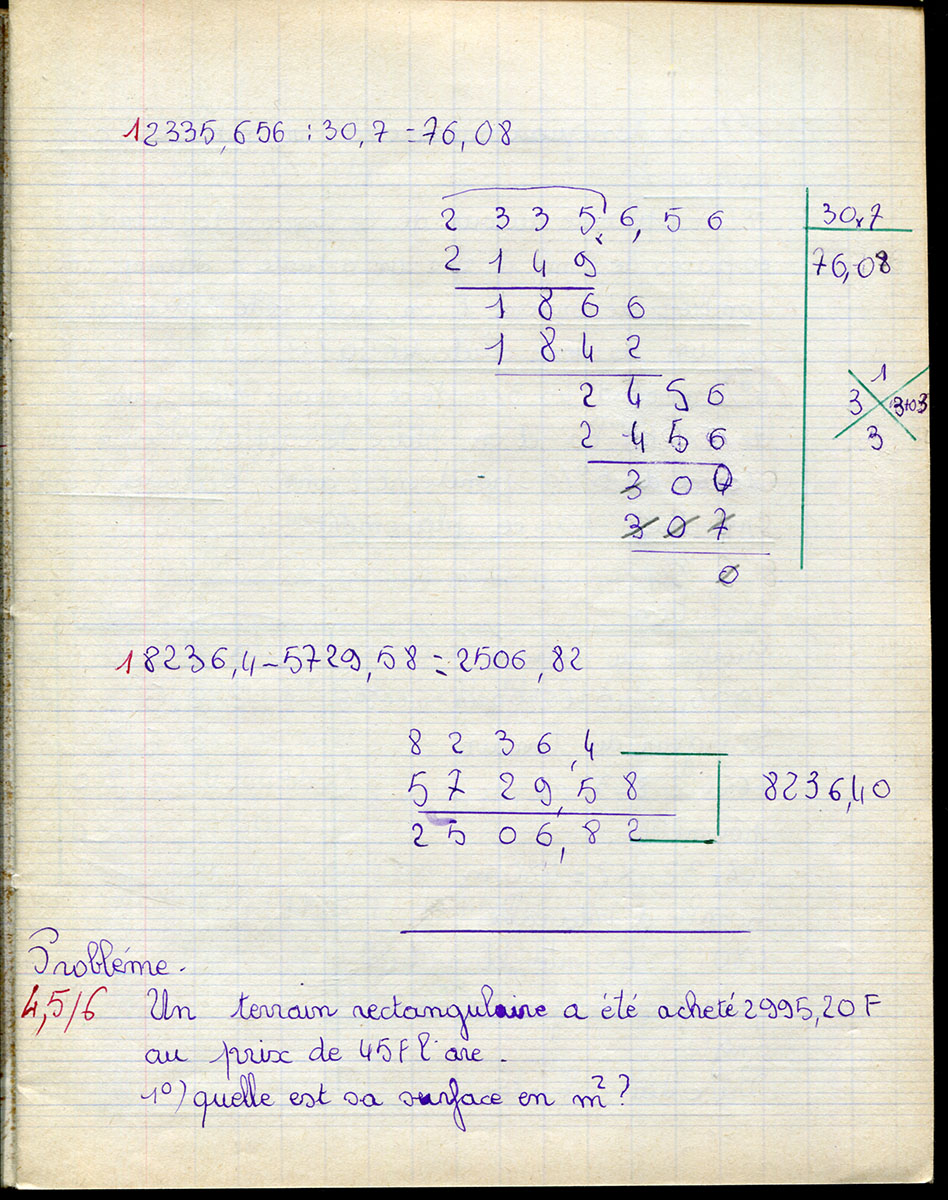 1 2335,656 : 30,7 = 76,08
2 3 3 5, 6, 5 6 30,7
2 1 4 9 76,08
1 8 6 6
1 8 4 2
1
2 4 5 6 3 3
2 4 5 6 3
3 0 7
3 0 7
0
1 8236,4 - 5729,58 = 2506,82
8 2 3 6, 4
5 7 2 9, 5 8 8236,40
2 5 0 6, 8 2
Probléme.
4,5/6 Un terrain rectangulaire a été acheté 2995,20 F
au prix de 45 F l'are.
1°) quelle est sa surface en m²?